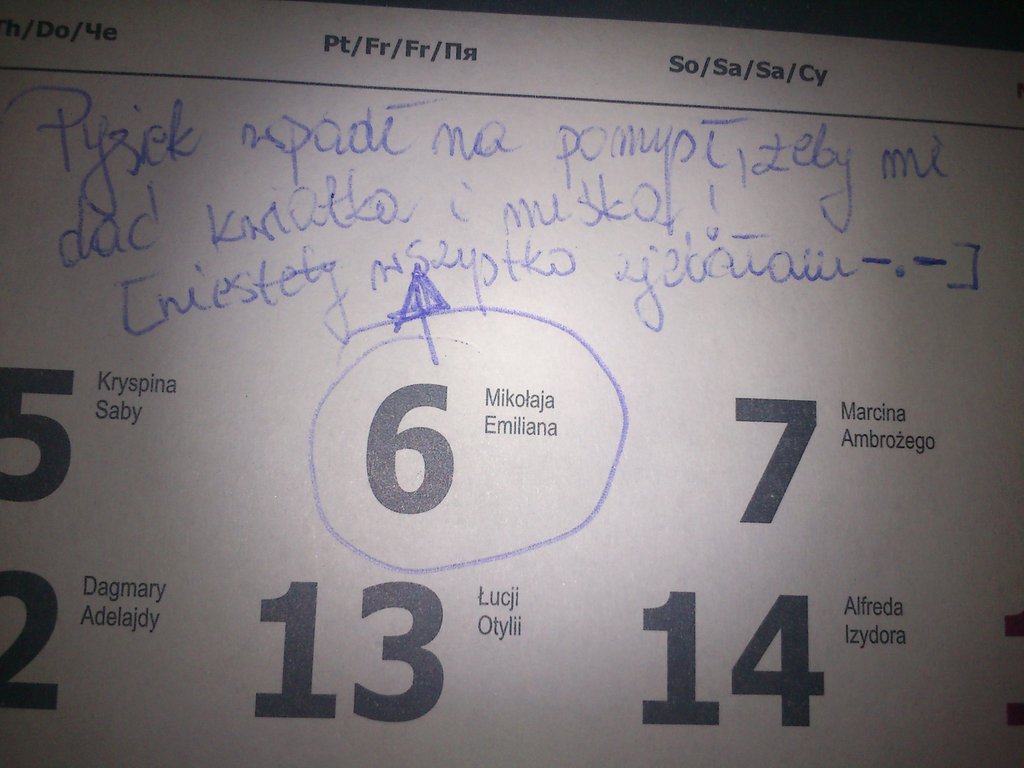 Th/Do/Че Pt/Fr/Fr/Пя So/Sa/Sa/Су
Pyziek wpadł na pomysł, żeby mi
dać kwiatka i miśka!
[niestety wszystko zjebałam -.-]
5 Kryspina 6 Mikołaja 7 Marcina
Saby Emiliana Ambrożego
2 Dagmary 13 Łucji 14 Alfreda
Adelajdy Otylii Izydora